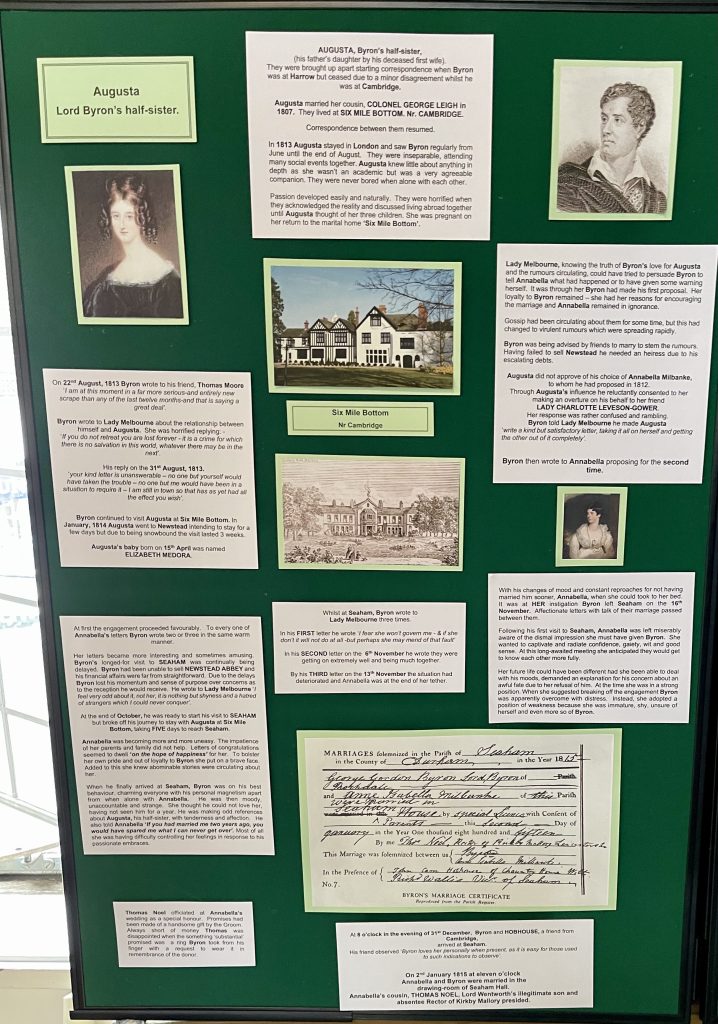 Augusta
Lord Byron's half-sister.
AUGUSTA, Byron's half-sister,
(his father's daughter by his deceased first wife).
They were brought up apart starting correspondence when Byron
was at Harrow but ceased due to a minor disagreement whilst he
was at Cambridge.
Augusta married her cousin, COLONEL GEORGE LEIGH in
1807. They lived at SIX MILE BOTTOM. Nr. CAMBRIDGE.
Correspondence between them resumed.
In 1813 Augusta stayed in London and saw Byron regularly from
June until the end of August. They were inseparable, attending
many social events together. Augusta knew little about anything in
depth as she wasn't an academic but was a very agreeable
companion. They were never bored when alone with each other.
Passion developed easily and naturally. They were horrified when
they acknowledged the reality and discussed living abroad together
until Augusta thought of her three children. She was pregnant on
her return to the marital home 'Six Mile Bottom'.
Six Mile Bottom
Nr Cambridge
On 22nd August, 1813 Byron wrote to his friend, Thomas Moore
'I am at this moment in a far more serious-and entirely new
scrape than any of the last twelve months-and that is saying a
great deal'.
Byron wrote to Lady Melbourne about the relationship between
himself and Augusta. She was horrified replying: -
'If you do not retreat you are lost forever - it is a crime for which
there is no salvation in this world, whatever there may be in the
next'.
His reply on the 31st August, 1813.
'your kind letter is unanswerable – no one but yourself would
have taken the trouble – no one but me would have been in a
situation to require it – I am still in town so that has as yet had all
the effect you wish'.
Byron continued to visit Augusta at Six Mile Bottom. In
January, 1814 Augusta went to Newstead intending to stay for a
few days but due to being snowbound the visit lasted 3 weeks.
Augusta's baby born on 15th April was named
ELIZABETH MEDORA.
Lady Melbourne, knowing the truth of Byron's love for Augusta
and the rumours circulating, could have tried to persuade Byron to
tell Annabella what had happened or to have given some warning
herself. It was through her Byron had made his first proposal. Her
loyalty to Byron remained – she had her reasons for encouraging
the marriage and Annabella remained in ignorance.
Gossip had been circulating about them for some time, but this had
changed to virulent rumours which were spreading rapidly.
Byron was being advised by friends to marry to stem the rumours.
Having failed to sell Newstead he needed an heiress due to his
escalating debts.
Augusta did not approve of his choice of Annabella Milbanke,
to whom he had proposed in 1812.
Through Augusta's influence he reluctantly consented to her
making an overture on his behalf to her friend
LADY CHARLOTTE LEVESON-GOWER.
Her response was rather confused and rambling.
Byron told Lady Melbourne he made Augusta
'write a kind but satisfactory letter, taking it all on herself and getting
the other out of it completely'.
Byron then wrote to Annabella proposing for the second
time.
At first the engagement proceeded favourably. To every one of
Annabella's letters Byron wrote two or three in the same warm
manner.
Her letters became more interesting and sometimes amusing.
Byron's longed-for visit to SEAHAM was continually being
delayed. Byron had been unable to sell NEWSTEAD ABBEY and
his financial affairs were far from straightforward. Due to the delays
Byron lost his momentum and sense of purpose over concerns as
to the reception he would receive. He wrote to Lady Melbourne 'I
feel very odd about it, not her, it is nothing but shyness and a hatred
of strangers which I could never conquer'.
At the end of October, he was ready to start his visit to SEAHAM
but broke off his journey to stay with Augusta at Six Mile
Bottom, taking FIVE days to reach Seaham.
Annabella was becoming more and more uneasy. The impatience
of her parents and family did not help. Letters of congratulations
seemed to dwell 'on the hope of happiness' for her. To bolster
her own pride and out of loyalty to Byron she put on a brave face.
Added to this she knew abominable stories were circulating about
her.
When he finally arrived at Seaham, Byron was on his best
behaviour, charming everyone with his personal magnetism apart
from when alone with Annabella. He was then moody,
unaccountable and strange. She thought he could not love her,
having not seen him for a year. He was making odd references
about Augusta, his half-sister, with tenderness and affection. He
also told Annabella 'If you had married me two years ago, you
would have spared me what I can never get over'. Most of all
she was having difficulty controlling her feelings in response to his
passionate embraces.
Whilst at Seaham, Byron wrote to
Lady Melbourne three times.
In his FIRST letter he wrote 'I fear she won't govern me - & if she
don't it will not do at all -but perhaps she may mend of that fault'
In his SECOND letter on the 6th November he wrote they were
getting on extremely well and being much together.
By his THIRD letter on the 13th November the situation had
deteriorated and Annabella was at the end of her tether.
With his changes of mood and constant reproaches for not having
married him sooner, Annabella, when she could took to her bed.
It was at HER instigation Byron left Seaham on the 16th
November. Affectionate letters with talk of their marriage passed
between them.
Following his first visit to Seaham, Annabella was left miserably
aware of the dismal impression she must have given Byron. She
wanted to captivate and radiate confidence, gaiety, wit and good
sense. At this long-awaited meeting she anticipated they would get
to know each other more fully.
Her future life could have been different had she been able to deal
with his moods, demanded an explanation for his concern about an
awful fate due to her refusal of him. At the time she was in a strong
position. When she suggested breaking off the engagement Byron
was apparently overcome with distress. Instead, she adopted a
position of weakness because she was immature, shy, unsure of
herself and even more so of Byron.
MARRIAGES solemnized in the Parish of Seaham
in the County of Durham, in the Year 1815
George Gordon Byron Lord Byron of Parish
Rochdale
and Anne Isabella Milbanke of this Parish
were married in
Seaham House by special licence with Consent of
Parents this Second Day of
January in the Year One thousand eight hundred and fifteen
By me Thos Noel, Rector of Kirkby Mallory Leicestershire
This Marriage was solemnized between us Byron
Anne Isabella Milbanke
In the Presence of John Cam Hobhouse of Wilts
Richd Wallis Vicr of Seaham
No. 7.
BYRON'S MARRIAGE CERTIFICATE
Reproduced from the Parish Register.
Thomas Noel officiated at Annabella's
wedding as a special honour. Promises had
been made of a handsome gift by the Groom.
Always short of money Thomas was
disappointed when the something 'substantial'
promised was a ring Byron took from his
finger with a request to wear it in
remembrance of the donor.
At 8 o'clock in the evening of 31st December, Byron and HOBHOUSE, a friend from
Cambridge,
arrived at Seaham.
His friend observed 'Byron loves her personally when present, as it is easy for those used
to such indications to observe'.
On 2nd January 1815 at eleven o'clock
Annabella and Byron were married in the
drawing-room of Seaham Hall.
Annabella's cousin, THOMAS NOEL, Lord Wentworth's illegitimate son and
absentee Rector of Kirkby Mallory presided.